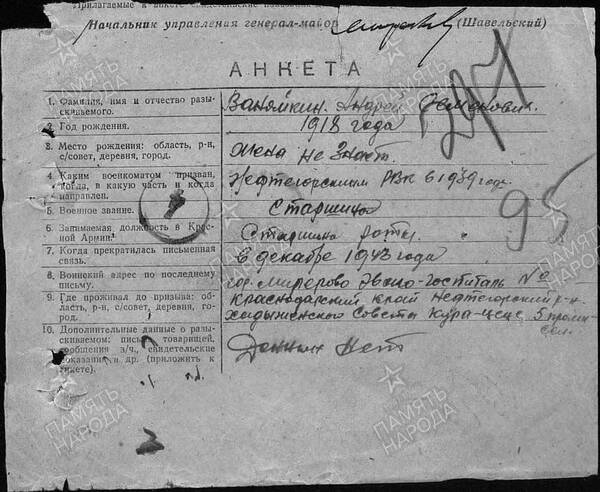 Прилагаемые к анкете свидетельские показания
Начальник управления генерал-майор (Шавельский)
АНКЕТА
297
1. Фамилия, имя и отчество разыскиваемого.
Ваняйкин Андрей Семенович.
2. Год рождения.
1918 года
3. Место рождения: область, р-н, с/совет, деревня, город.
Жена не знает.
4. Каким военкоматом призван, когда, в какую часть и когда направлен.
Нефтегорским РВК в 1939 году.
5. Военное звание.
Старшина
6. Занимаемая должность в Красной Армии.
Старшина роты.
95
7. Когда прекратилась письменная связь.
в декабре 1943 года
8. Воинский адрес по последнему письму.
гор. Миллерово Эвако-госпиталь №
9. Где проживал до призыва: область, р-н, с/совет, деревня, город.
Краснодарский край Нефтегорский р-н
Хадыженского Совета Кура-цеце 5 промысел.
10. Дополнительные данные о разыскиваемом: письма товарищей, сообщения в/ч., свидетельские показания и др. (приложить к анкете).
Данных нет
ПАМЯТЬ НАРОДА